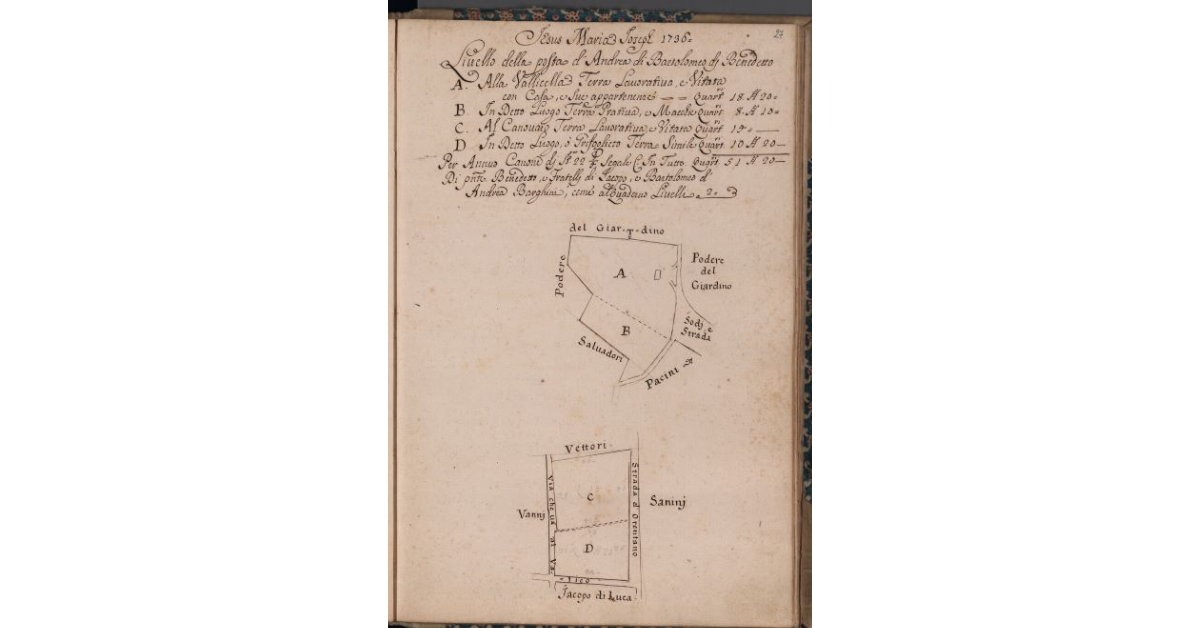 27
Jesus Maria Josef 1736.
Livello della posta d' Andrea di Bartolomeo dj Benedetto
A. Alla Vallicella Terra Lavorativa, e Vitata
con Casa, e sue appartenenze - - Quart. 18. N 20.
B. In Detto Luogo Terra Prativa, e Macchie Quart. 8. N 10.
C. Al Canovaio Terra Lavorativa e Vitata Quart. 13.
D In Detto Luogo, ò Grifoglieto Terra Simile Quart. 10 N 20
Per Annuo Canone dj Sta 22 Segale C. In Tutto Quart. 51 N 20
Di pnte Benedetto, e Fratelli di Jacopo, e Bartolomeo d'
Andrea Borghini, come al Quaderno Livelli a 2.
del Giar - dino
Podere
A
Podere
del
Giardino
B
Sodj e
Strada
Salvadori
Pacini
Vettori
C
Via che va al Va
Vannj
Strada d' Orentano
Saninj
D
Jacopo di Luca